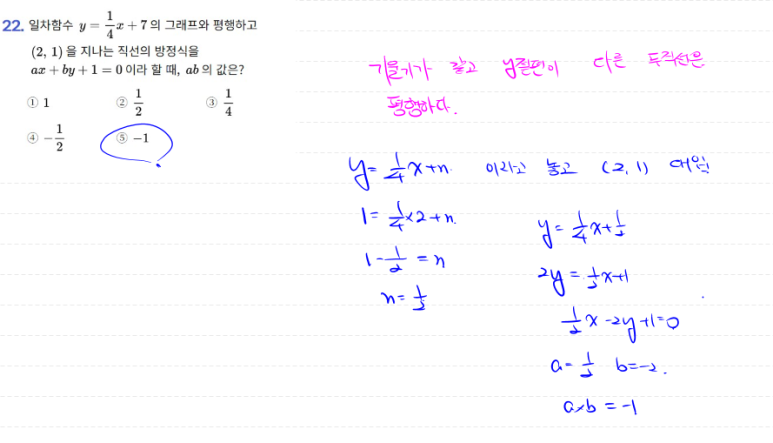 22. 일차함수 y = 1/4 x + 7 의 그래프와 평행하고
(2, 1) 을 지나는 직선의 방정식을
ax + by + 1 = 0 이라 할 때, ab 의 값은?
① 1 ② 1/2 ③ 1/4
④ -1/2 ⑤ -1
기울기가 같고 y절편이 다른 두직선은
평행하다.
y = 1/4 x + n 이라고 놓고 (2, 1) 대입
1 = 1/4 × 2 + n
1 - 1/2 = n
n = 1/2
y = 1/4 x + 1/2
2y = 1/2 x + 1
1/2 x - 2y + 1 = 0
a = 1/2 b = -2.
a×b = -1